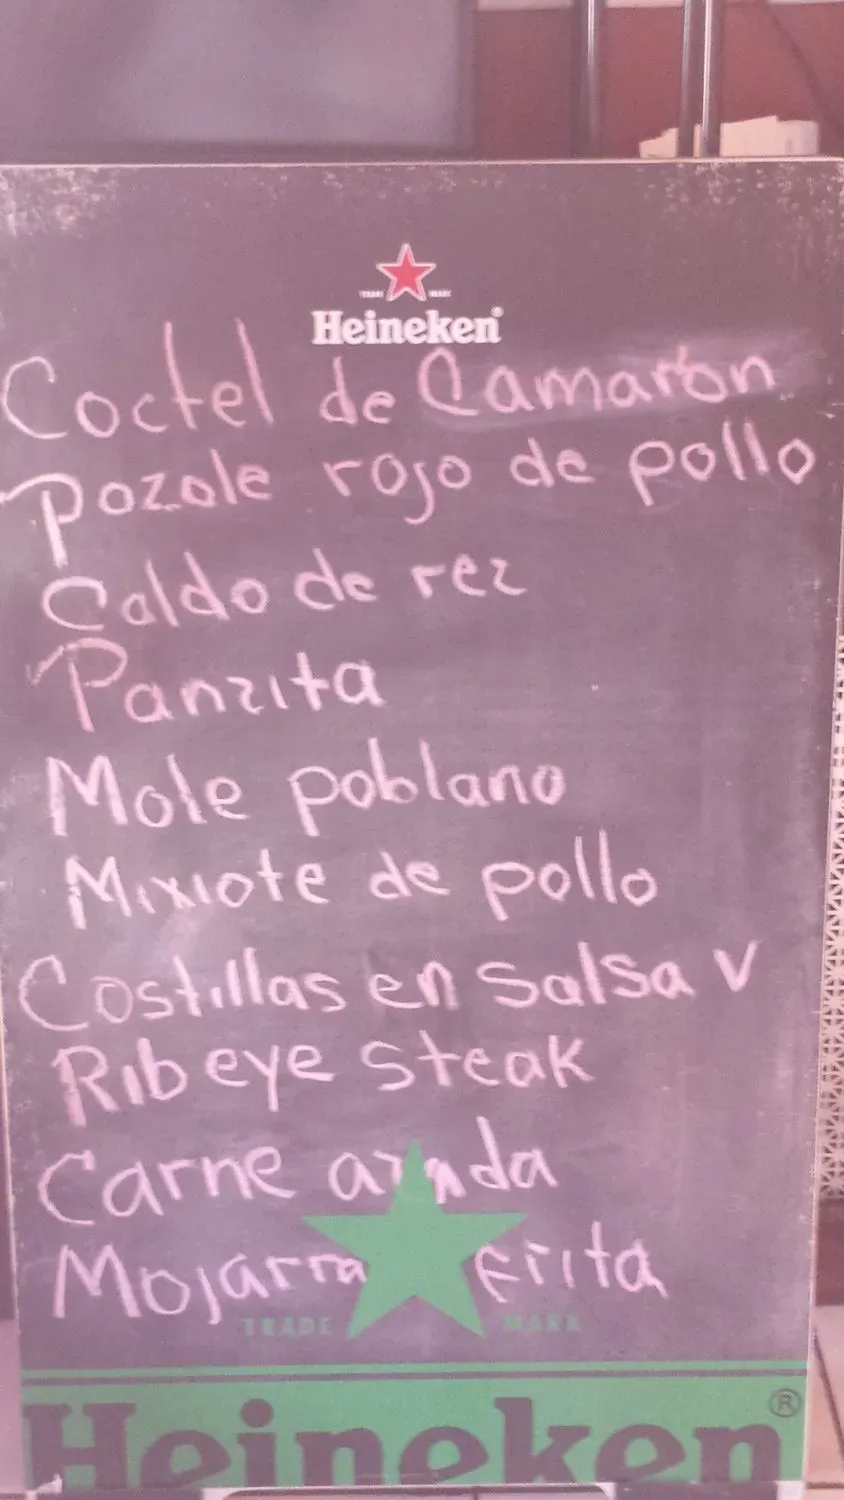 TRADE MARK
Heineken®
Coctel de Camarón
Pozole rojo de pollo
Caldo de rez
Panzita
Mole poblano
Mixiote de pollo
Costillas en salsa v
Rib eye steak
Carne asada
Mojarra frita
TRADE MARK
Heineken®